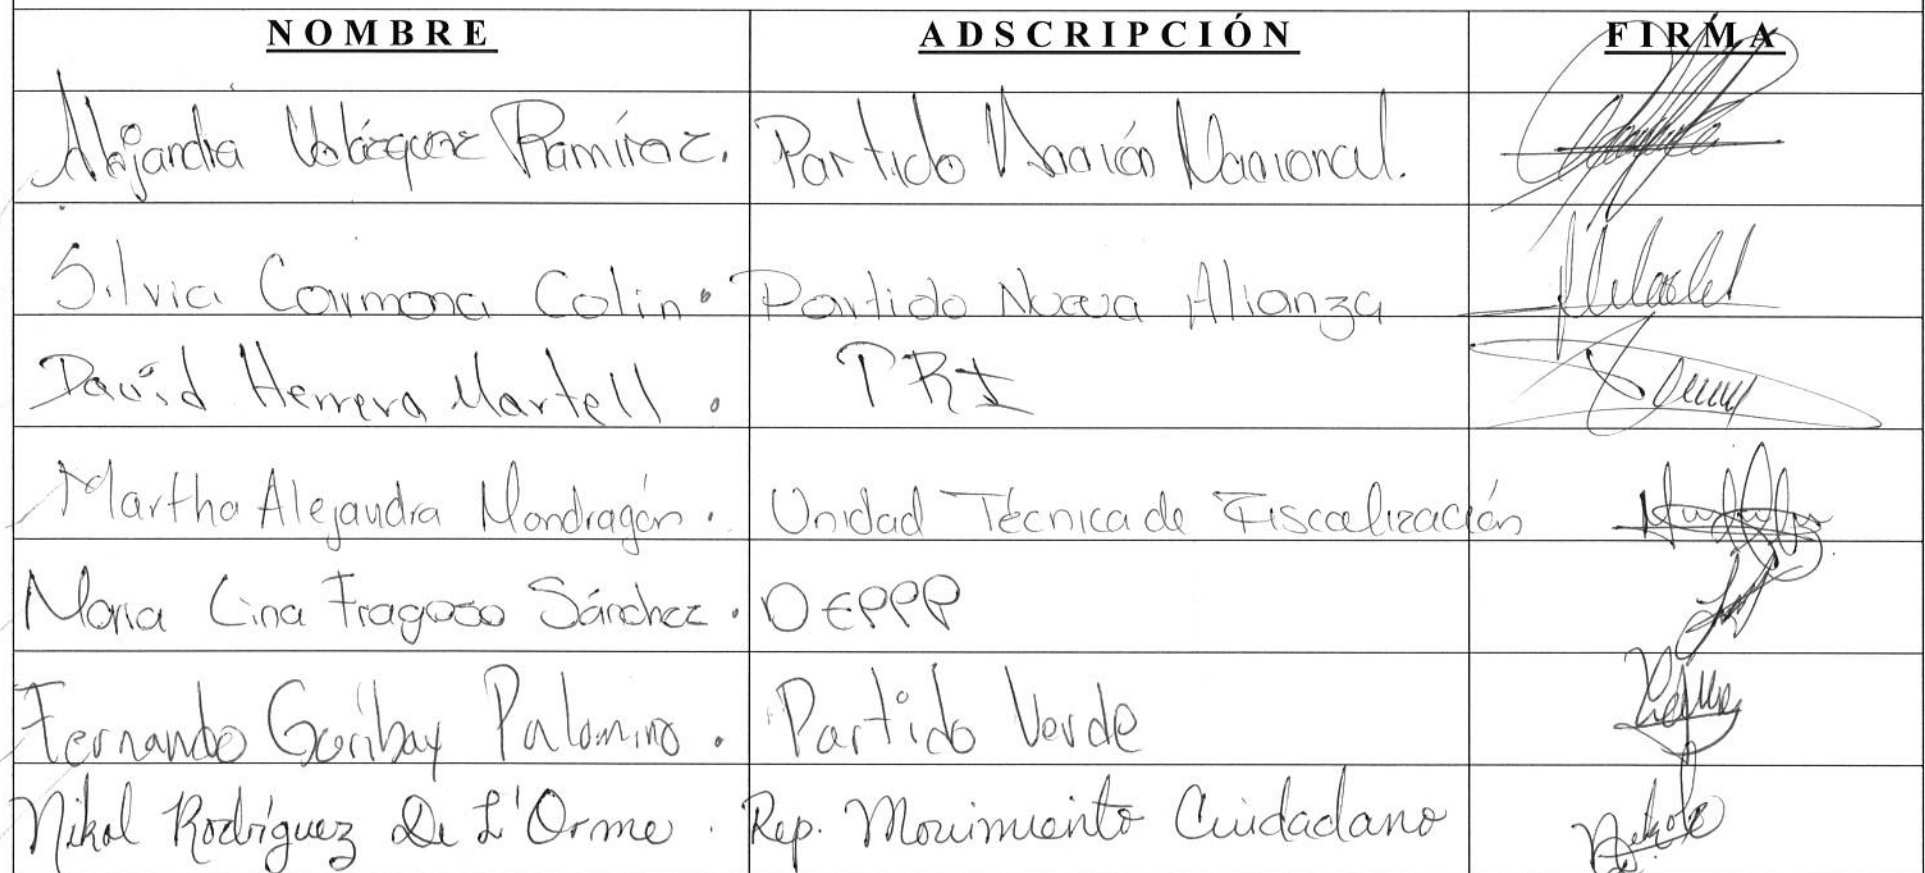 NOMBRE ADSCRIPCIÓN FIRMA
Alejandra Velázquez Ramírez. Partido Acción Nacional.
Silvia Carmona Colin. Partido Nueva Alianza
David Herrera Martell. PRI
Martha Alejandra Mondragón. Unidad Técnica de Fiscalización
Maria Lina Fragoso Sánchez. DEPPP
Fernando Garibay Palomino. Partido Verde
Nikol Rodríguez De L'Orme. Rep. Movimiento Ciudadano